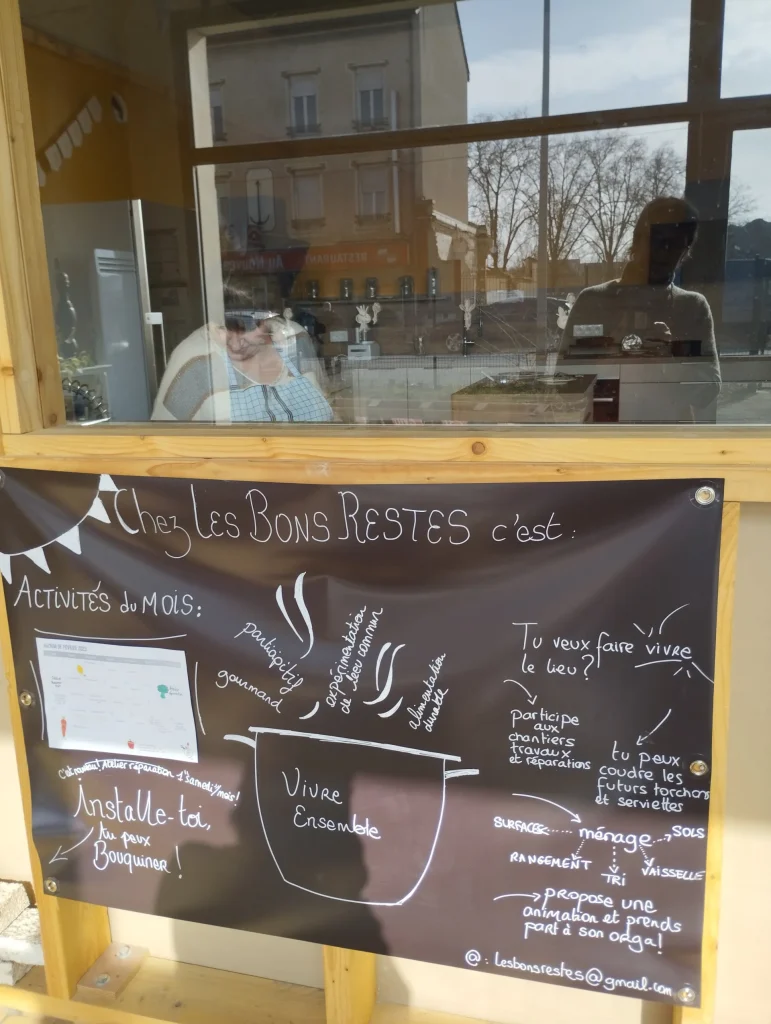 RESTAURANT
Chez LES BONS RESTES c'est :
ACTIVITÉS du MOIS :
C'est nouveau ! Atelier réparation 1 Samedi/mois !
Installe-toi,
tu peux
Bouquiner !
participatif
gourmand
expérimentation
de lieu commun
alimentation
durable
Vivre
Ensemble
Tu veux faire vivre
le lieu ?
participe
aux
chantiers
travaux
et réparations
tu peux
coudre les
futurs torchons
et serviettes
SURFACES
ménage
SOLS
RANGEMENT
TRI
VAISSELLE
propose une
animation et prends
part à son orga !
@ : lesbonsrestes@gmail.com